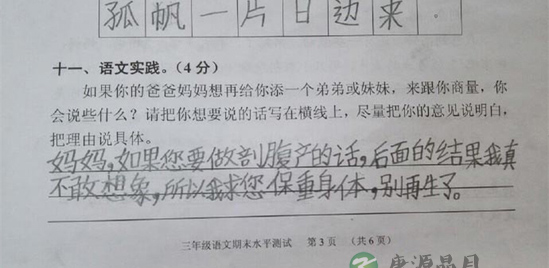 孤帆一片日边来.
十一、语文实践。(4分)
如果你的爸爸妈妈想再给你添一个弟弟或妹妹，来跟你商量，你
会说些什么？请把你想要说的话写在横线上，尽量把你的意见说明白，
把理由说具体。
妈妈,如果您要做剖腹产的话,后面的结果我真
不敢想象,所以我求您保重身体,别再生了。
三年级语文期末水平测试 第3页 (共6页)